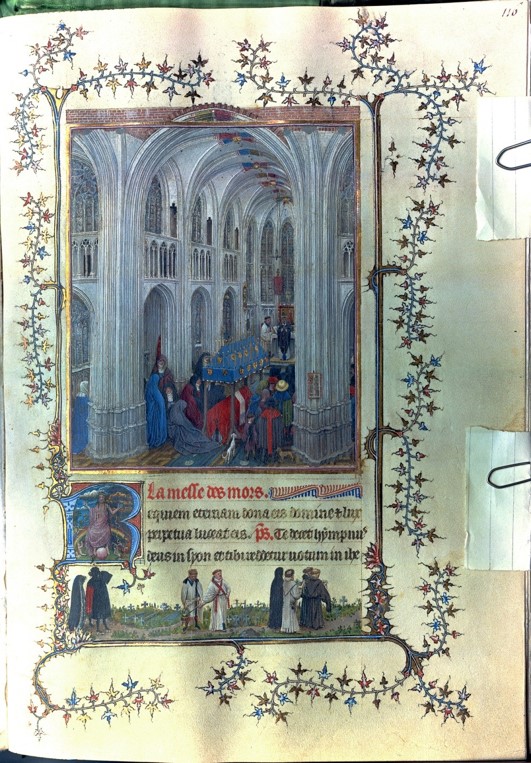 110
La messe des mors.
Requiem eternam dona eis domine & lux
perpetua luceat eis. ps. Te decet hympnus
deus in syon et tibi reddetur uotum in ihe